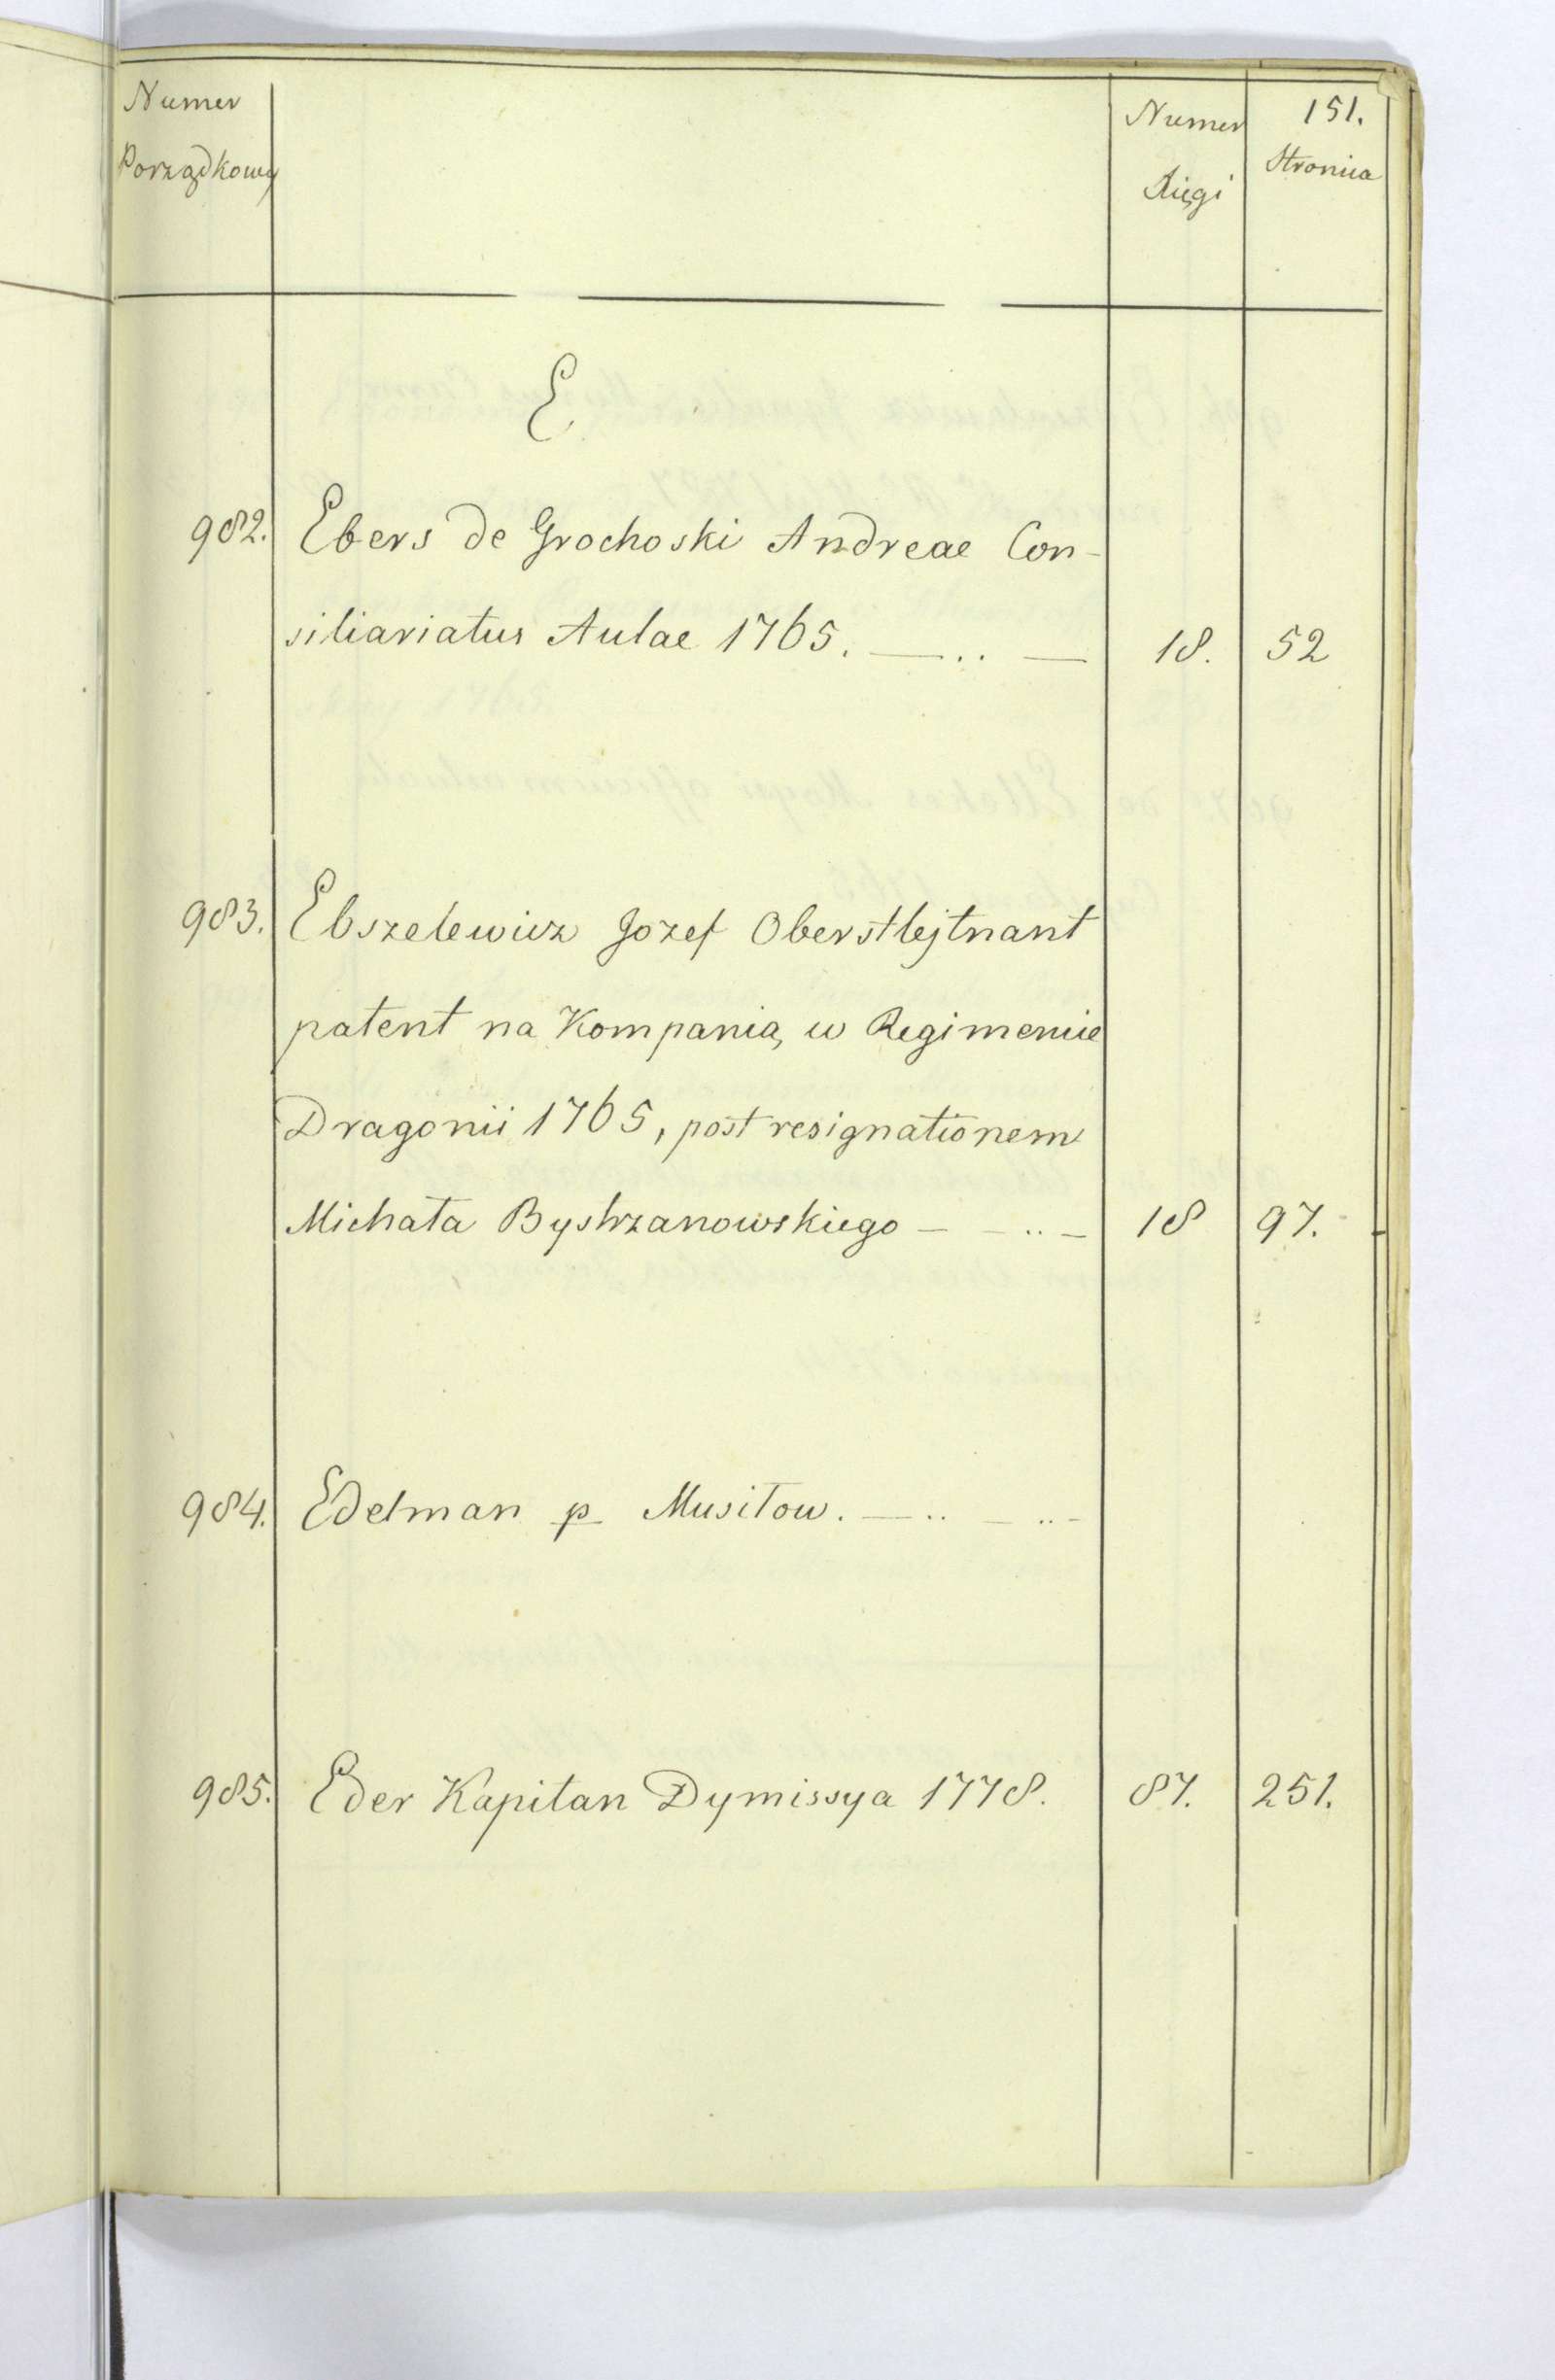 151.
Numer Numer Stronica
Porządkowy Xięgi
E
982. Ebers de Grochoski Andreae Con-
siliariatus Aulae 1765. 18. 52
983. Ebszelewicz Jozef Oberstlejtnant
patent na Kompanią w Regimencie
Dragonii 1765, post resignationem
Michała Bystrzanowskiego 18 97.
984. Edelman p Musiłow.
985. Eder Kapitan Dymissya 1778. 87. 251.